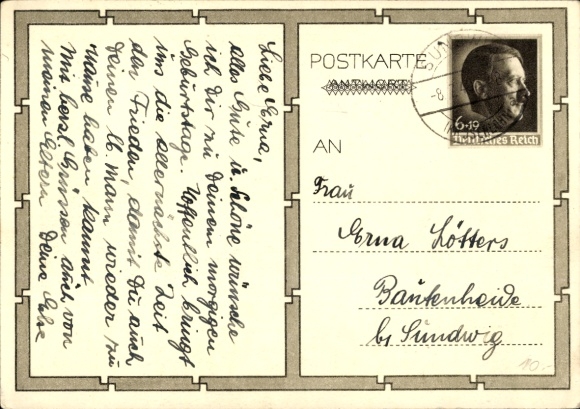 Liebe Erna,
alles Gute u Schöne wünsche
ich Dir zu Deinem morgigen
Geburtstage. Hoffentlich bringt
uns die allernächste Zeit
den Frieden, damit Du auch
Deinen lb. Mann wieder zu
Hause haben kannst
Mit herzl. Grüssen auch von
meinen Eltern Deine
POSTKARTE
ANTWORT
6+19
Deutsches Reich
AN
Frau
Erna Lötters
Bautenheide
b/ Sundwig
10.-